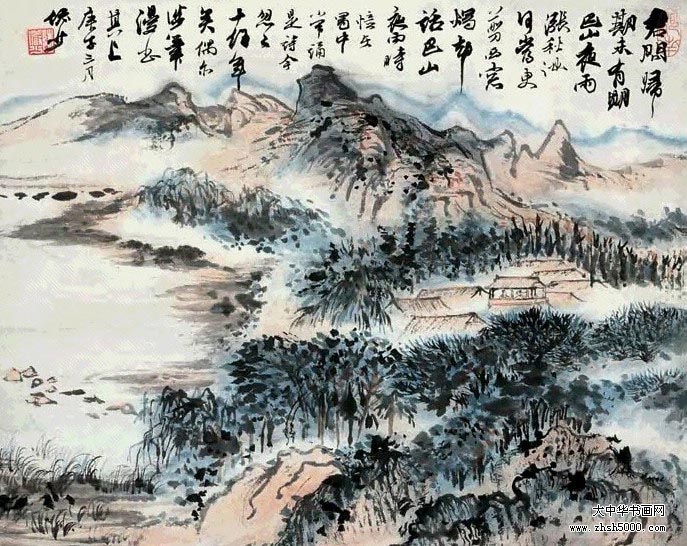 君問歸
期未有期
巴山夜雨
漲秋池
何當更
剪西窗
燭却
話巴山
夜雨時
憶在
蜀中
常誦
是詩今
忽忽
十餘年
矣偶尔
筆
漫書
其上
庚午三月
大中华书画网
www.zhsh5000.com